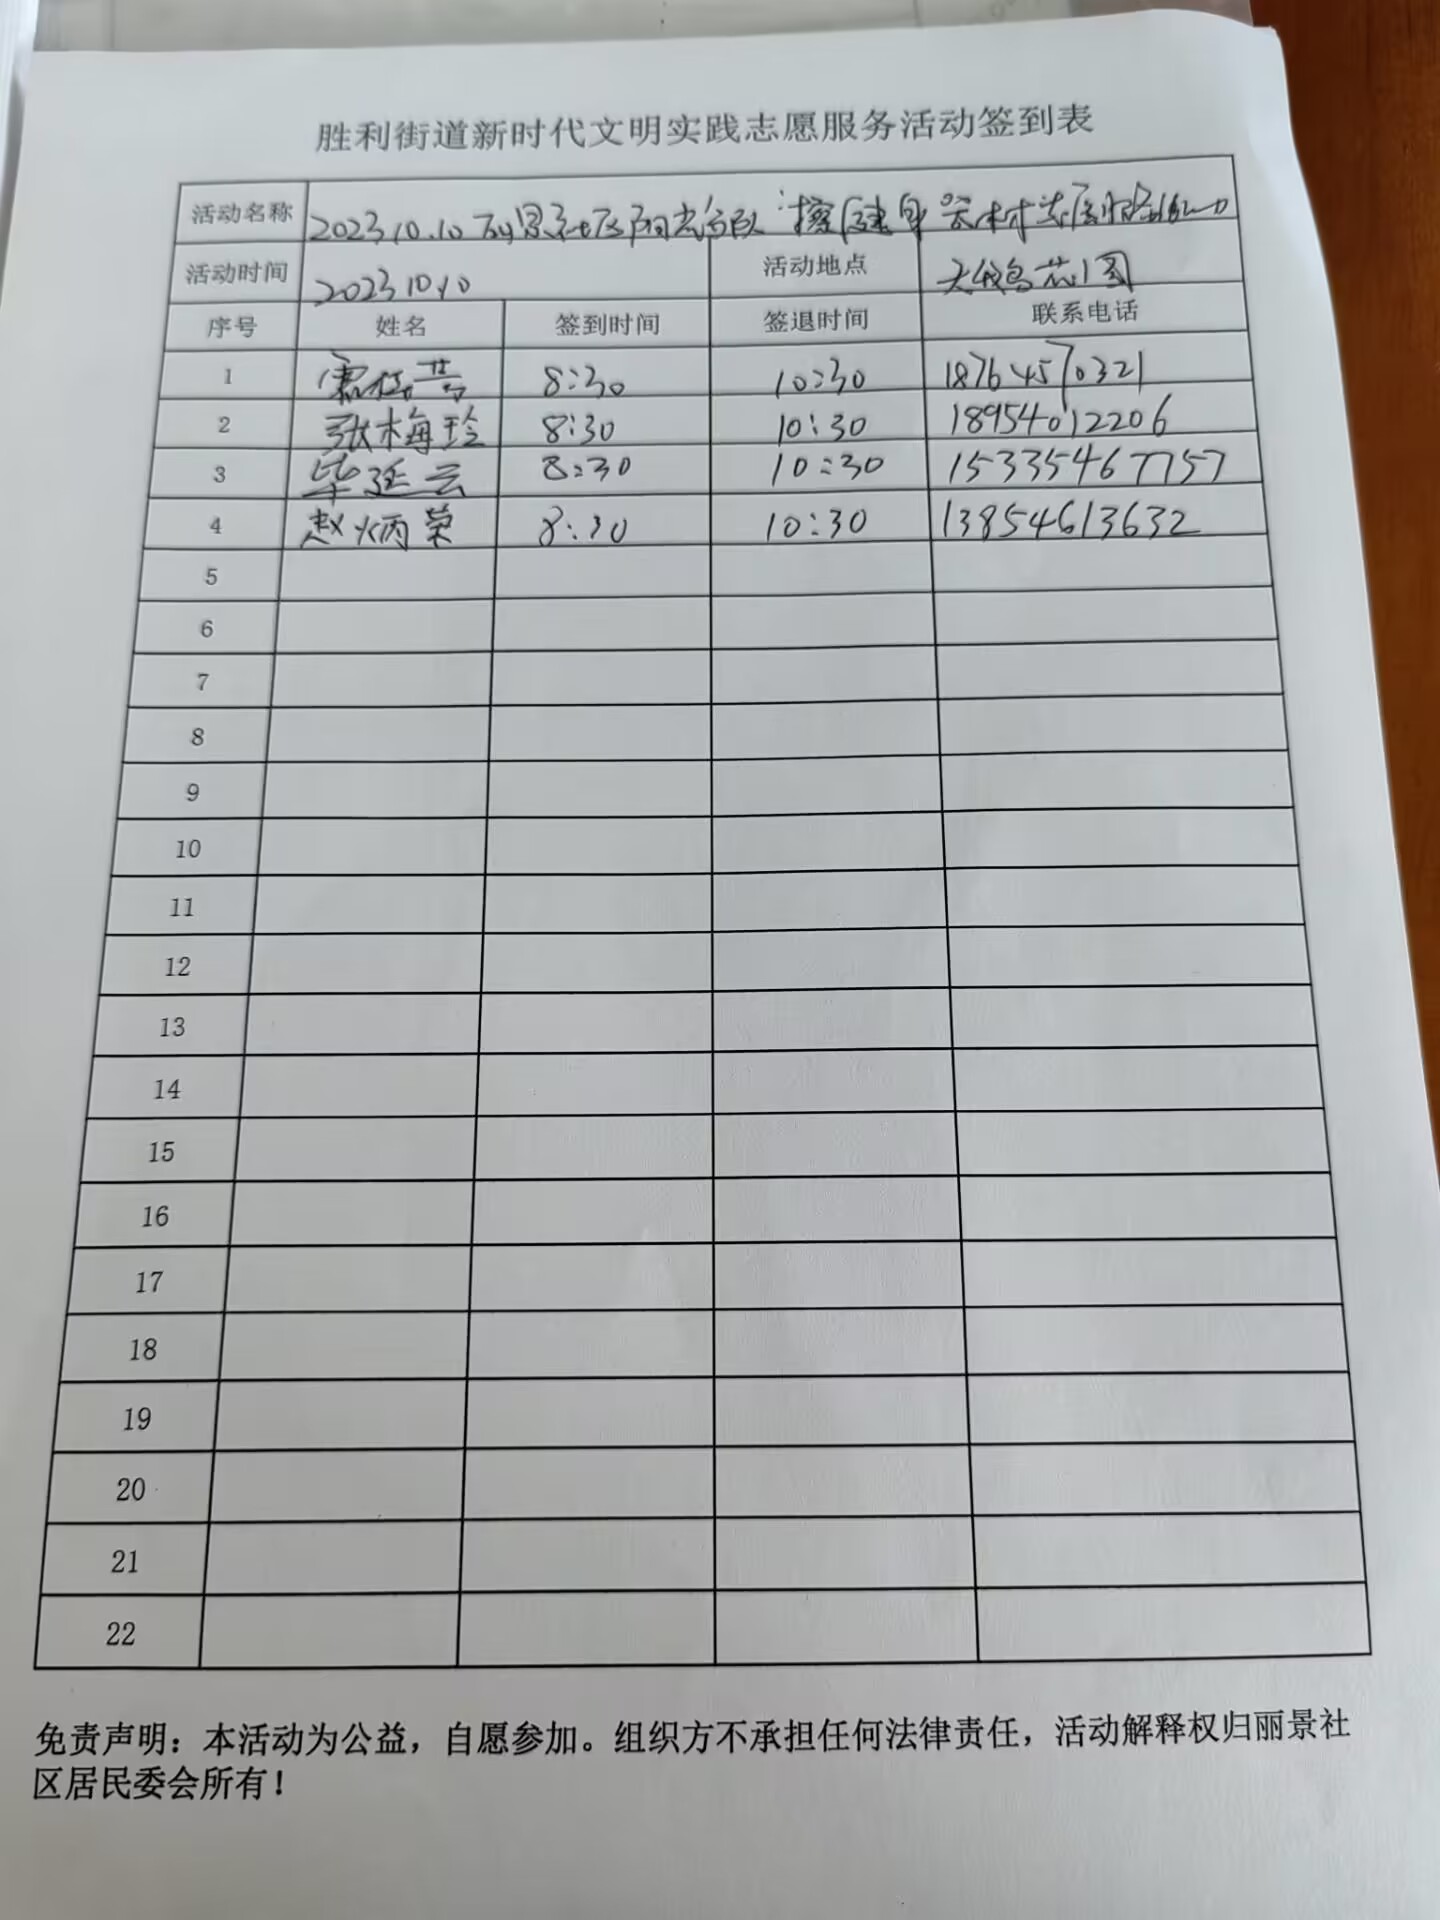 胜利街道新时代文明实践志愿服务活动签到表
活动名称 2023.10.10 丽景社区阳光 队 擦健身器材志愿服务活动
活动时间 2023.10.10 活动地点 天鹅
序号 姓名 签到时间 签退时间 联系电话
1 8:30 10:30 18764570321
2 张梅玲 8:30 10:30 18954012206
3 毕延云 8:30 10:30 15335467757
4 赵炳荣 8:30 10:30 13854613632
5
6
7
8
9
10
11
12
13
14
15
16
17
18
19
20
21
22
免责声明：本活动为公益，自愿参加。组织方不承担任何法律责任，活动解释权归丽景社
区居民委会所有！